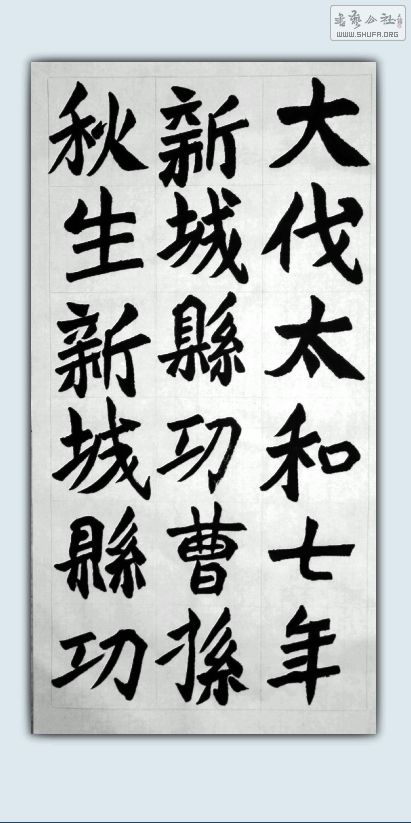 大伐太和七年
新城縣功曹孫
秋生新城縣功
書藝公社
WWW.SHUFA.ORG